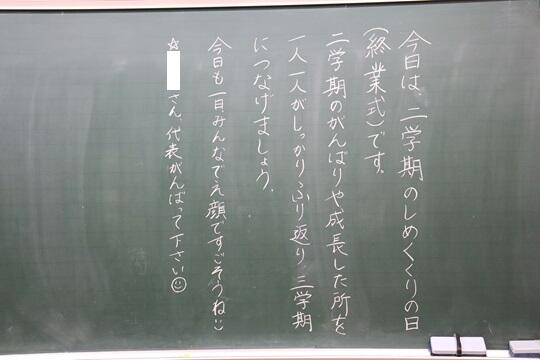 今日は、二学期のしめくくりの日
(終業式)です。
二学期のがんばりや成長した所を
一人一人がしっかりふり返り三学期
につなげましょう。
今日も一日みんなでえ顔ですごそうね:)
☆ さん、代表がんばって下さい☺